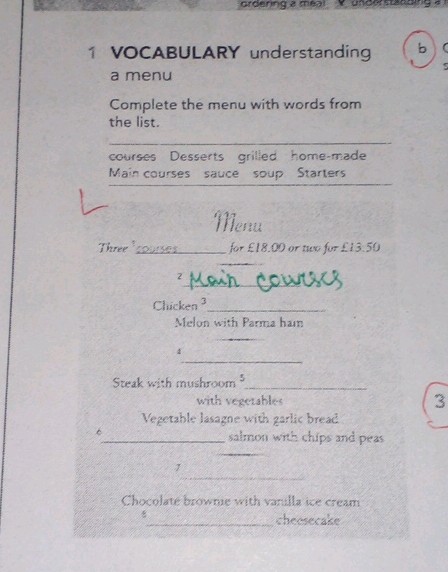 ordering a meal V understanding a
1 VOCABULARY understanding
a menu
b
Complete the menu with words from
the list.
courses Desserts grilled home-made
Main courses sauce soup Starters
Menu
Three 1 courses for £18.00 or two for £13.50
2 Main courses
Chicken 3
Melon with Parma ham
4
Steak with mushroom 5
with vegetables
Vegetable lasagne with garlic bread
6 salmon with chips and peas
3
7
Chocolate brownie with vanilla ice cream
8 cheesecake